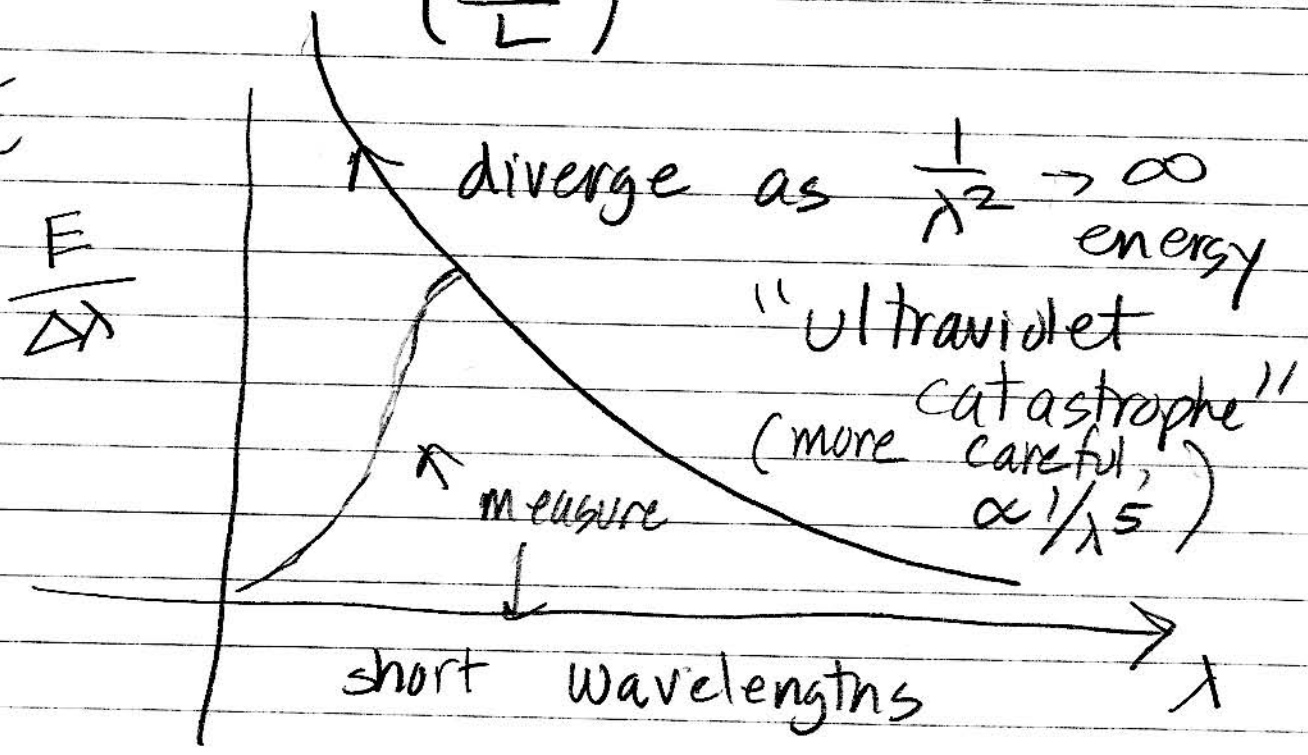 L
diverge as 1/λ² → ∞
energy
E/Δλ
"ultraviolet
catastrophe"
(more careful,
∝ 1/λ⁵)
measure
short wavelengths
λ